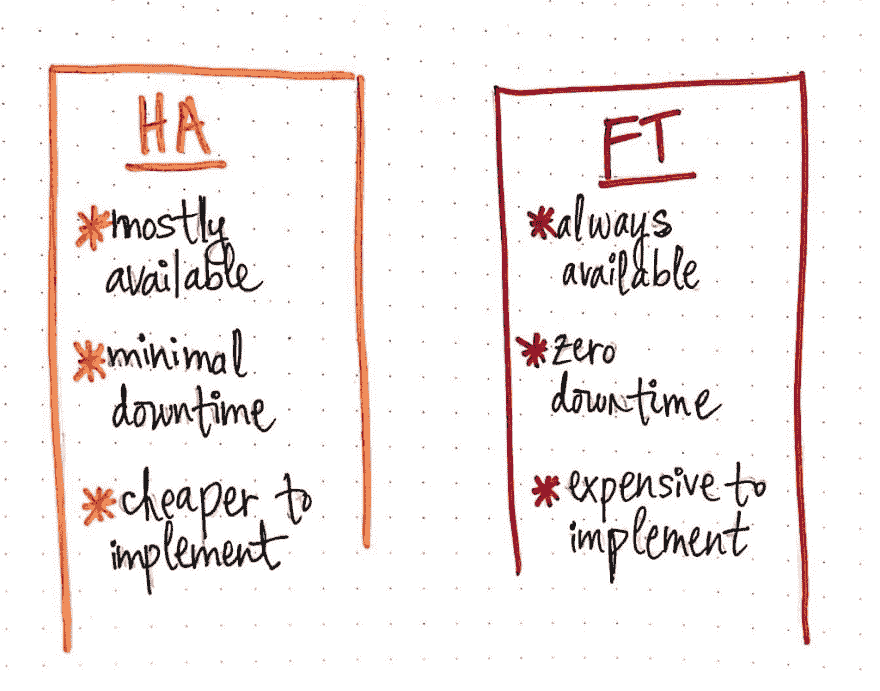 HA
*mostly
available
*minimal
downtime
*cheaper to
implement
FT
*always
available
*zero
downtime
*expensive to
implement